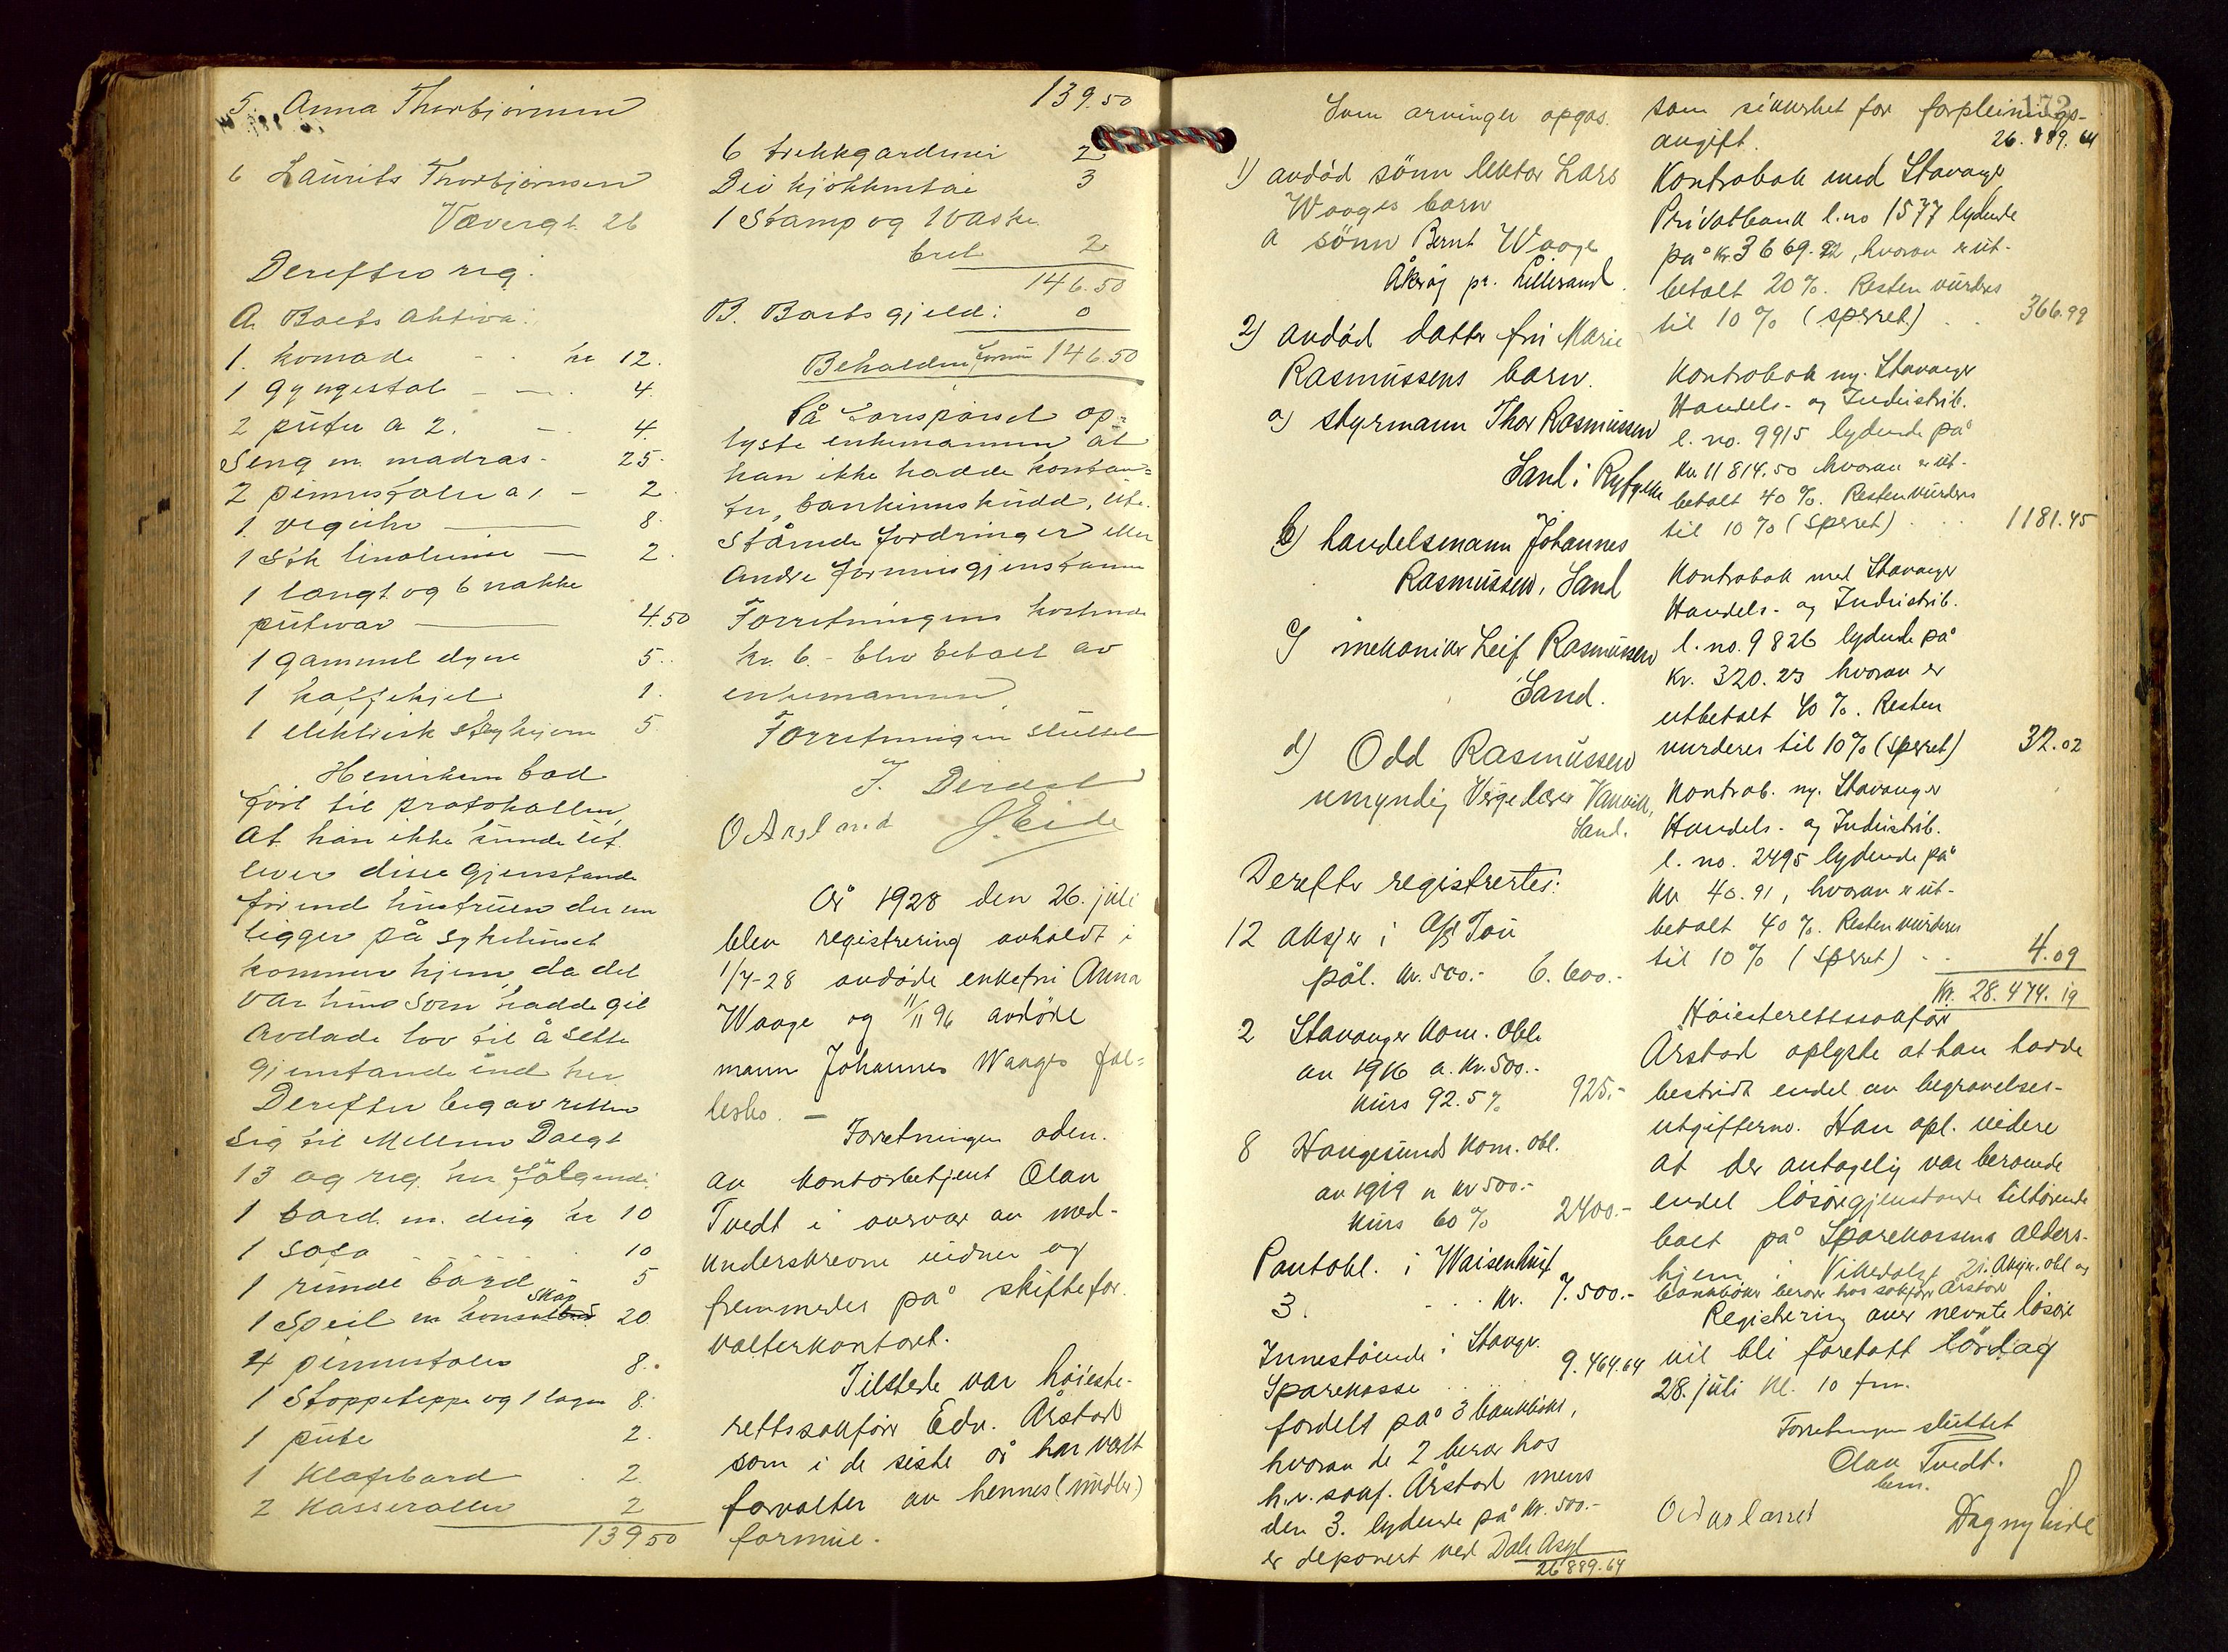 5. Anna Thorbjørnsen
6 Laurits Thorbjørnsen
Vævergt. 26
Derefter reg.
A. Boets Aktiva:
1. komode - - kr 12.
1 gyngestol - - 4.
2 puter a 2. - 4.
Seng m. madras - 25.
2 pinnestoler a 1 - 2.
1. vegguhr - 8.
1 Stk linoleum - 2.
1 langt og 6 nakke
putevar - 4.50
1 gammel dyne 5..
1 kaffekjel 1.
1 elektrisk 5
Enkemannen bad
ført til protokollen
at han ikke kunde ut
lever disse gjenstande
før end hustruen der nu
ligger på sykehuset
kommer hjem, da det
var hun som hadde git
avdøde lov til å sette
gjenstande ind her
Derefter begav retten
sig til Mellem Dalgt
13 og reg. her følgende:
1 bord. m. dug kr 10
1 sofa - - - - 10
1 runde bord 5
1 Speil m konsol skap 20
4 pinnestoler 8.
1 Stoppeteppe og 1 lagen 8.
1 pute 2.
1 Klafebord 2.
2 Kasseroller 2
139 50
139.50
6 trekkgardiner 2
Div kjøkkentøi 3
1 Stamp og 1 vaske
bret 2
146.50
B. Boets gjeld: 0
Beholden formue 146.50
På forespørsel op=
lyste enkemannen at
han ikke hadde kontan=
ter, bankinnskudd, ute
stående fordringer eller
Andre formuesgjenstande
Forretningens kostende
kr. 6.- blev betalt av
enkemannen
Forretningen sluttet
O Arsland J. Eide
År 1928 den 26. juli
blev registrering avholdt i
1/7-28 avdøde enkefru Anna
Waage og 11/11 96 avdøde
mann Johannes Waages fæl=
lesbo. -
Forretningen adm.
av kontorbetjent Olav
Tvedt i overvær av med-
underskrevne vidner og
fremmedes på skiftefor
valterkontoret.
Tilstede var høieste-
rettssakfører Edv. Årstad
som i de siste år har vært
forvalter av hennes (midler)
formue.
172
Som arvinger opgas.
1) avdød sønn lektor Lars
Waages barn
a sønn Bernt Waage
Åkerøj pr. Lillesand.
2) avdød datter fru Marie
Rasmussens barn.
a) styrmann Thor Rasmussen
Sand i Ryfylke
b) handelsmann Johannes
Rasmussen, Sand
c) mekaniker Leif Rasmussen
Sand.
d) Odd Rasmussen
umyndig Verge lærer Vanvik,
Sand.
Derefter registrertes:
12 aksjer i A/S Tou
pål. kr. 500.- 6.600.-
2 Stavanger kom. obl.
av 1916 a. kr. 500.-
kurs 92.5 % 925.-
8 Haugesunds kom. obl.
av 1919 a kr 500.-
kurs 60 % 2400.-
Pantobl. i Waisenhuset
3. - - - kr. 7.500.-
Innestående i Stavgr.
Sparekasse .. .. 9.464.64
fordelt på 3 bankbøker,
hvorav de 2 beror hos
h.r. sakf. Årstad mens
den 3. lydende på kr. 500.-
er deponert ved Dale Asyl
26 889.64
som sikkerhet for forpleinings-
avgift. 26.889.64
Kontrabok med Stavanger
Privatbank l.no 1577 lydende
på kr 3669.92, hvorav er ut-
betalt 20 %. Resten vurderes
til 10 % (sperret) . . 366.99
Kontrabok ny. Stavanger
Handels- og Industrib.
l. no. 9915 lydende på
kr. 11 814.50 hvorav er ut-
betalt 40 %. Resten vurderes
til 10 % (sperret) . . . 1181.45
Kontrabok med Stavanger
Handels- og Industrib.
l. no. 9826 lydende på
kr. 320.23 hvorav er
utbetalt 40 %. Resten
vurderes til 10% (sperret) 32.02
Kontrab. ny. Stavanger
Handels- og Industrib.
l. no. 2495 lydende på
kr 40.91, hvorav er ut-
betalt 40 %. Resten vurderes
til 10 % (sperret) - - 4.09
Kr. 28.474.19
Høiesterettssakfører
Årstad oplyste at han hadde
bestridt endel av begravelses-
utgifterne. Han opl. videre
at der antagelig var beroende
endel løsøregjenstande tilhørende
boet på Sparekassens alders-
hjem i Vikedalsgt 21. Aksjer. obl og
bankbøker beror hos sakfører Årstad
Registrering over nevnte løsøre
vil bli foretatt lørdag
28. juli kl. 10 fm.
Forretningen sluttet
Olav Tvedt.
bem.
Dagny Eide